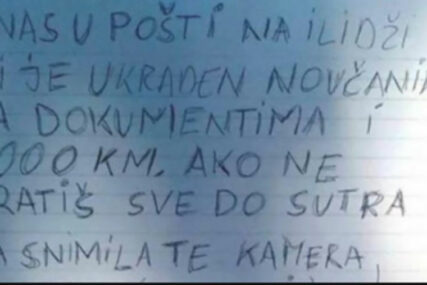 NAS U POŠTI NA ILIDŽI
I JE UKRADEN NOVČANI
A DOKUMENTIMA I
000 KM. AKO NE
RATIŠ SVE DO SUTRA
A SNIMILA TE KAMERA,